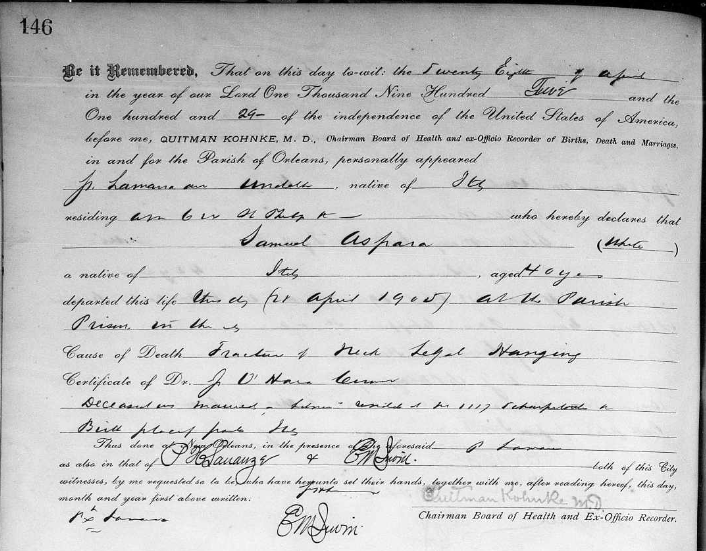 146
Be it Remembered, That on this day to-wit: the Twenty Eighth of April
in the year of our Lord One Thousand Nine Hundred Five and the
One hundred and 29- of the independence of the United States of America,
before me, QUITMAN KOHNKE, M. D., Chairman Board of Health and ex-Officio Recorder of Births, Death and Marriages,
in and for the Parish of Orleans, personally appeared
an undertaker, native of Italy
residing St Philip St — who hereby declares that
Samuel Aspara (White)
a native of Italy, aged 40 yrs
departed this life this day (28 April 1905) at the Parish
Prison in this city
Cause of Death Fracture of Neck Legal Hanging
Certificate of Dr. J O'Hara
Deceased was married, resided No 1117
Birth place of Italy
Thus done at New Orleans, in the presence of the aforesaid
as also in that of P H Lanauze & E M Irwin. both of this City
witnesses, by me requested so to be who have hereunto set their hands, together with me, after reading hereof, this day,
month and year first above written.
Quitman Kohnke M.D.
E M Irwin
Chairman Board of Health and Ex-Officio Recorder.